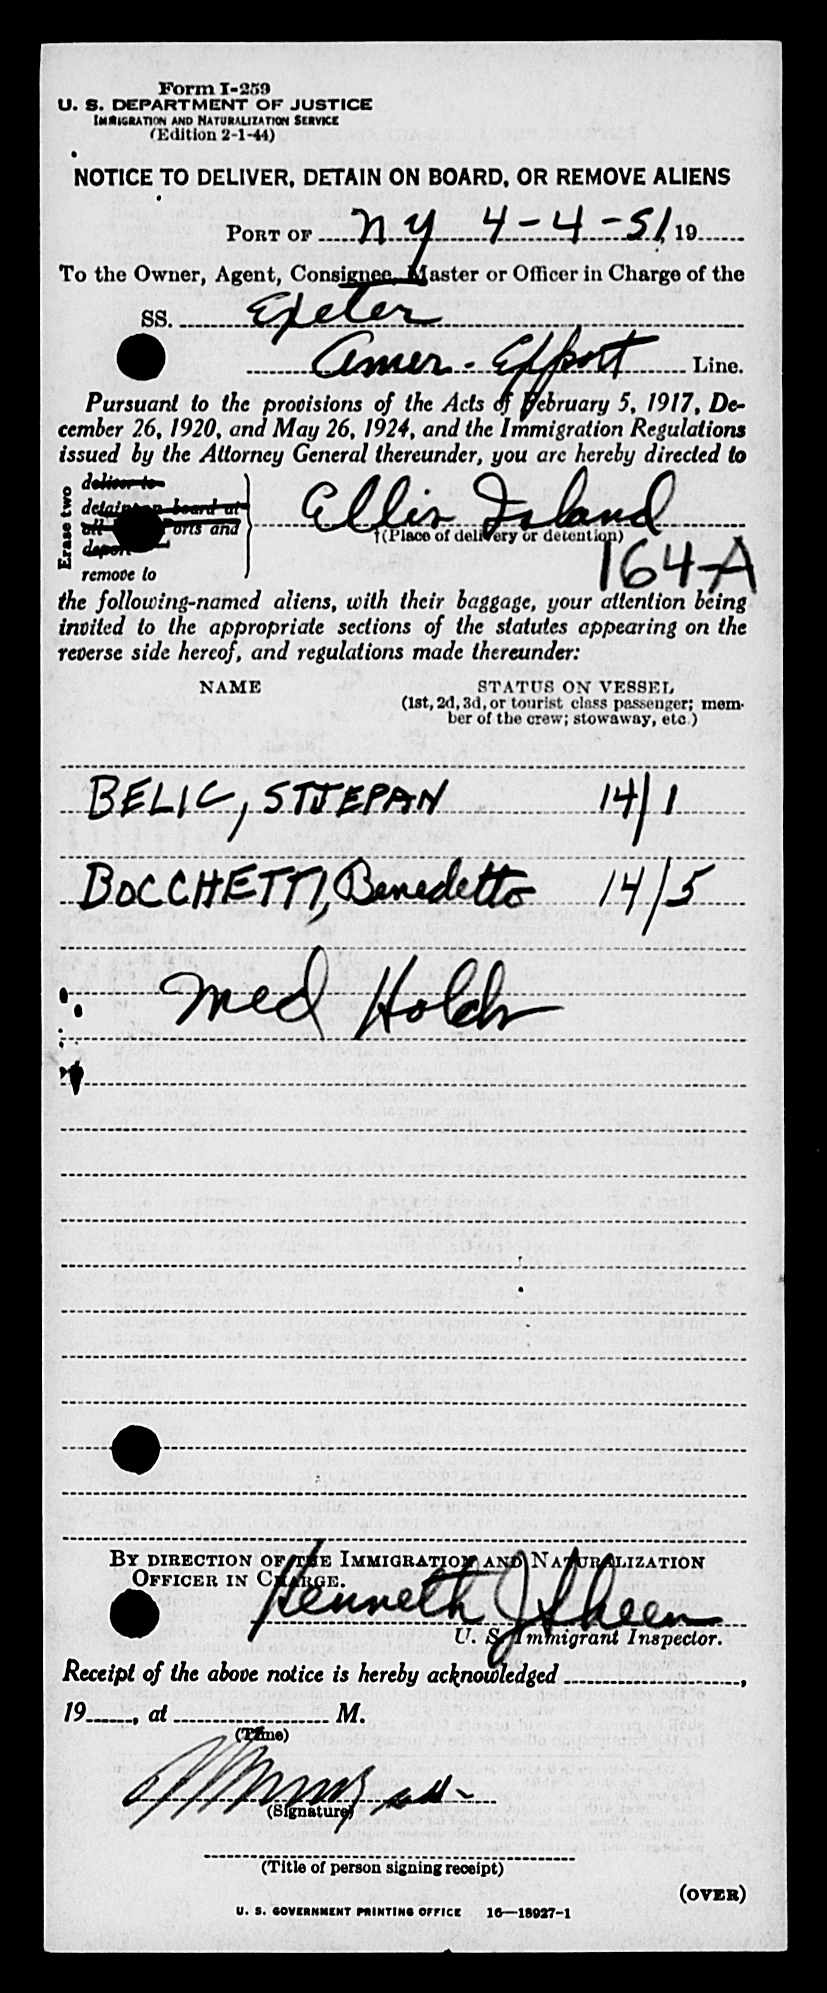 Form I-259
U. S. DEPARTMENT OF JUSTICE
IMMIGRATION AND NATURALIZATION SERVICE
(Edition 2-1-44)
NOTICE TO DELIVER, DETAIN ON BOARD, OR REMOVE ALIENS
PORT OF NY 4-4-51, 19
To the Owner, Agent, Consignee, Master or Officer in Charge of the
SS. Exeter
Amer. Export Line.
Pursuant to the provisions of the Acts of February 5, 1917, De-
cember 26, 1920, and May 26, 1924, and the Immigration Regulations
issued by the Attorney General thereunder, you are hereby directed to
Erase two
deliver to
detain on board at
all Ports and
deport
remove to
Ellis Island
†(Place of delivery or detention)
164-A
the following-named aliens, with their baggage, your attention being
invited to the appropriate sections of the statutes appearing on the
reverse side hereof, and regulations made thereunder:
NAME STATUS ON VESSEL
(1st, 2d, 3d, or tourist class passenger; mem-
ber of the crew; stowaway, etc.)
BELIC, STJEPAN 14/1
BOCCHETTI, Benedetto 14/5
Med Holds
BY DIRECTION OF THE IMMIGRATION AND NATURALIZATION
OFFICER IN CHARGE.
Kenneth J Skeen
U. S. Immigrant Inspector.
Receipt of the above notice is hereby acknowledged ,
19 , at M.
(Time)
(Signature)
(Title of person signing receipt)
(OVER)
U. S. GOVERNMENT PRINTING OFFICE 16—18927-1